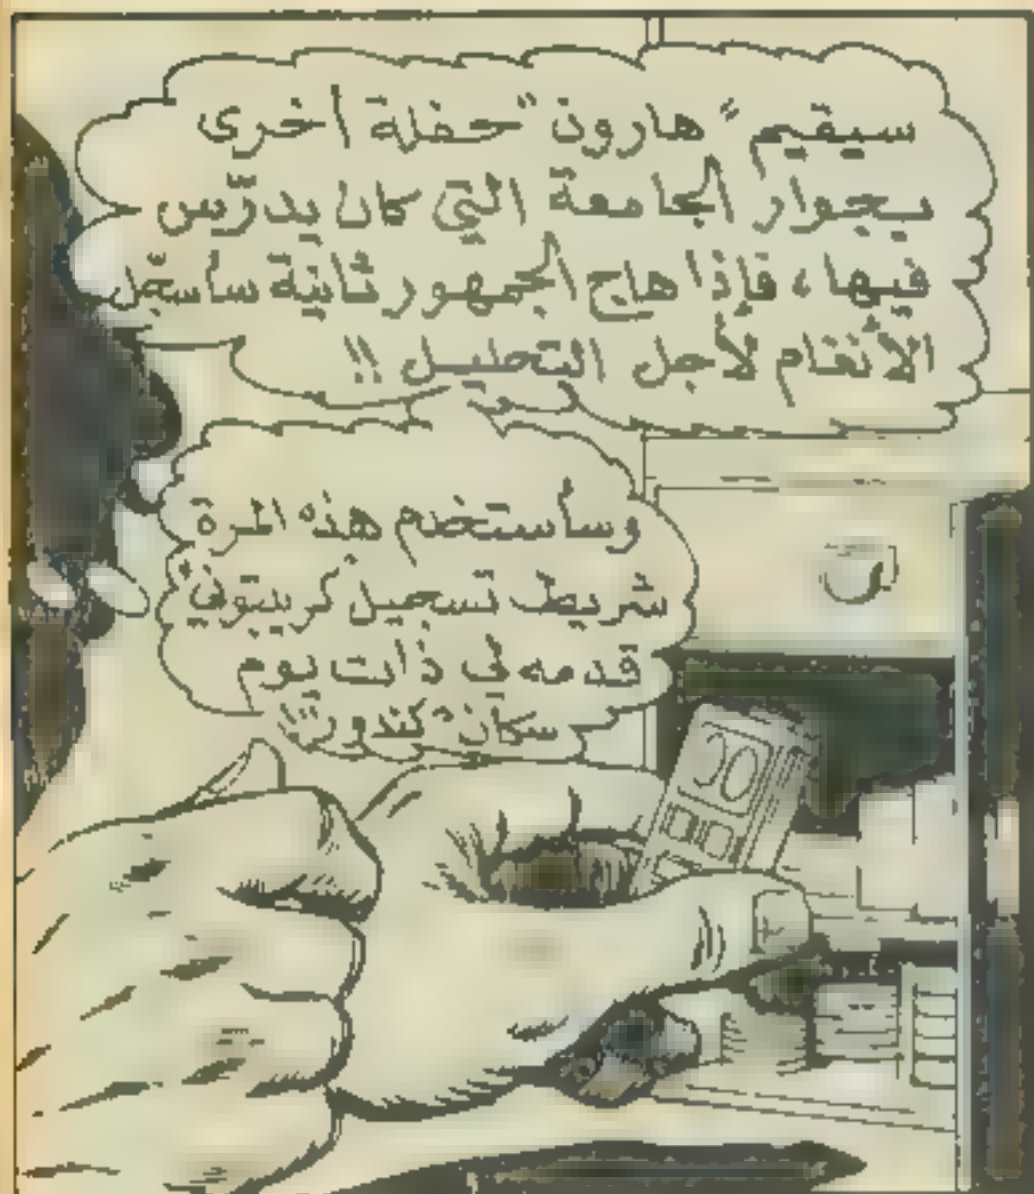 سيقيم "هارون" حفلة أخرى
بجوار الجامعة التي كان يدرّس
فيها، فإذا هاج الجمهور ثانية سأسجّل
الأنغام لأجل التحليل !!
وسأستخدم هذه المرة
شريط تسجيل "كريبتوني"
قدمه لي ذات يوم
سكان "كندور"!!